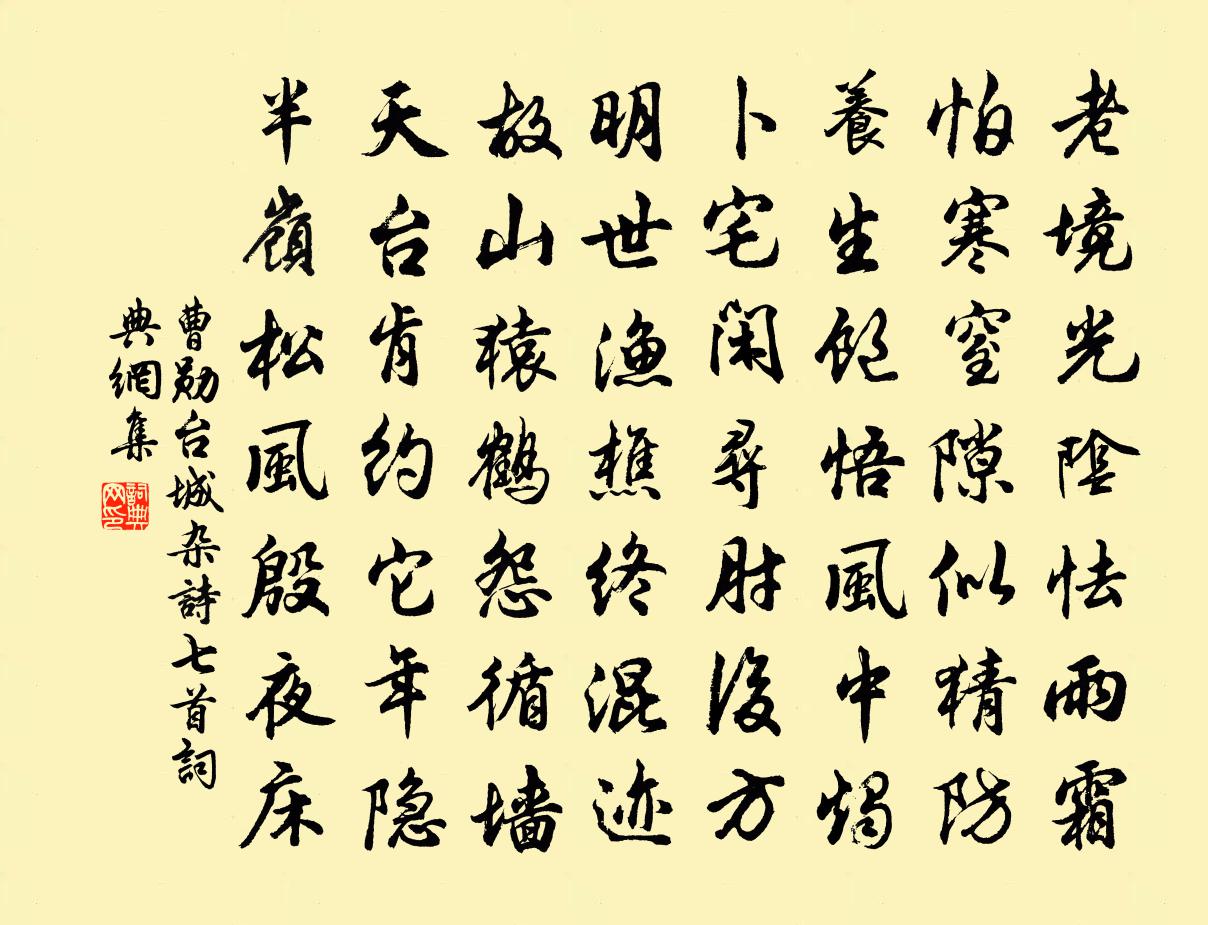 老境光陰怯雨霜
怕寒窒隙似猜防
養生飽悟風中燭
卜宅閑尋肘後方
明世漁樵終混迹
故山猿鶴怨循墙
天台肯约它年隐
半嶺松風殷夜床
曹勋台城杂詩七首詞
典網集
詞典
网印